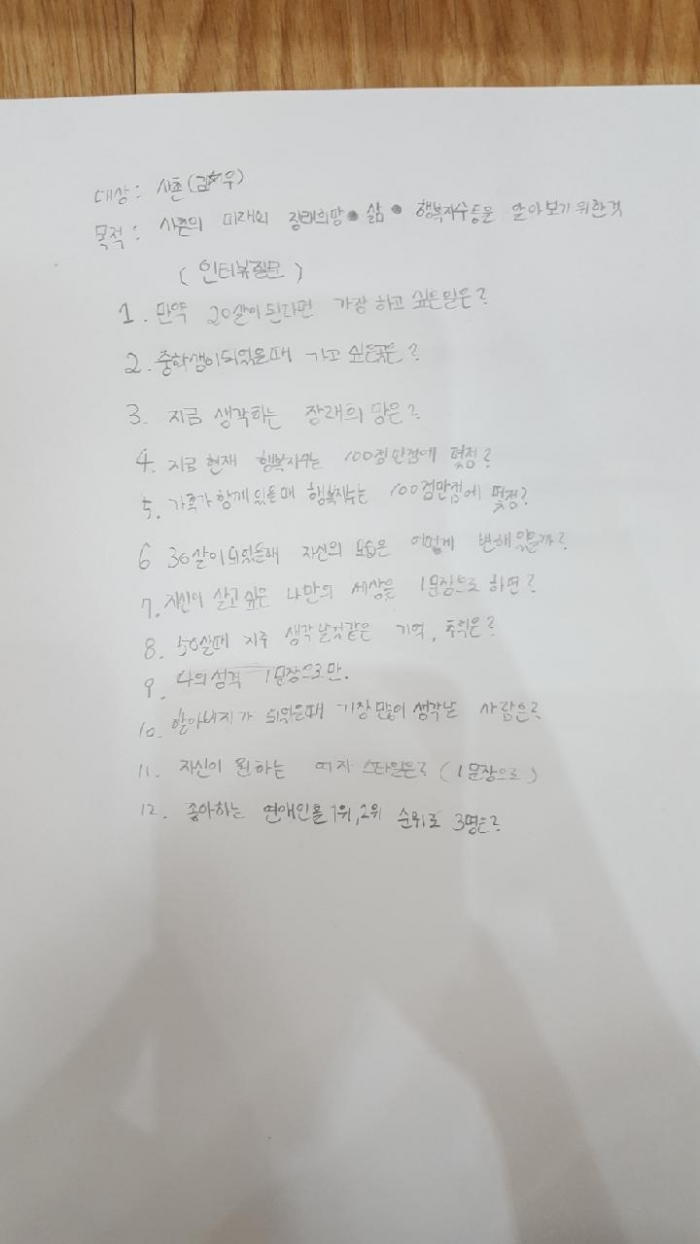 대상: 사촌(김 우)
목적: 사촌의 미래의 장래희망 • 삶 • 행복지수등을 알아보기위한것
(인터뷰질문)
1. 만약 20살이된다면 가장 하고 싶은일은?
2. 중학생이되었을때 가고 싶은곳은?
3. 지금 생각하는 장래희망은?
4. 지금 현재 행복지수는 100점만점에 몇점?
5. 가족가 함께 있을때 행복지수는 100점만점에 몇점?
6 30살이되었을때 자신의 모습은 어떻게 변해있을까?
7. 자신이 살고 싶은 나만의 세상을 1문장으로 하면?
8. 50살때 자주 생각날것같은 기억, 추억은?
9. 나의성격 1문장으로만.
10. 할아버지가 되었을때 가장많이 생각날 사람은?
11. 자신이 원하는 여자 스타일은? (1문장으로)
12. 좋아하는 연애인을 1위,2위 순위로 3명은?